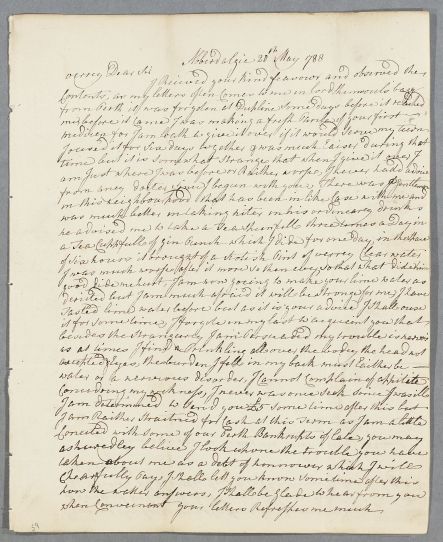 Aberdalgie 28th May 788
verrey Dear Sir
I Received your kind feavour and observed the
Contents, as my letters often Comes to me in
from Perth it was forgoten at Dupline some days before it reached
me; before it Came I was making a fresh of your first
for I am loath to give it over if it would serve my turn
I used it for Sex days together & was much Easier During that
time but it is somewhat strange that when I give it over I
am Just where I was before or Raither worse, I never had advice
from aney docter since I begun with you. There was a gentleman
in this neighbourhood that has been in like Case with me and
was much better in taking niter in his ordinearey drink
he advised me to take a Tea thrice a day in
a Tea Cuppfull of gin Punch which I dide for one day, in the space
of Six hours I brought of a Scotish Pint of verrey Clear water
I was much worse after it more so then ever so that what dide him
good dide me hurt. I am now going to make your lime water as
derected but I am much afraid it will be strong for me, I have
tasted lime water before but as it is your advice I shall use
it for some time, I forgote in my last to acquent you that
besides the Strangurey I my trouble is nervus
is at times I find a all over the bodey, the head not
excepted Eyes, the burden I fell in my back must Eaither be
water or a nerveous disorder, I Cannot Complain of appitete
Concidring my sickness, I never was once seek since I was ill
I am determined to send you some time after this but
I am Raither Straitned for Cash at this term as I am a little
Conected with some of our Perth Bankrupts of late, you may
ashuredley believe I look upone the trouble you have
taken about me as a debt of honnower which I will
Chearfulley pay, I shall let you know some time after this
how the water answers, I shall be glade to hear from you
when Convenient your letters Refreshes me much
59